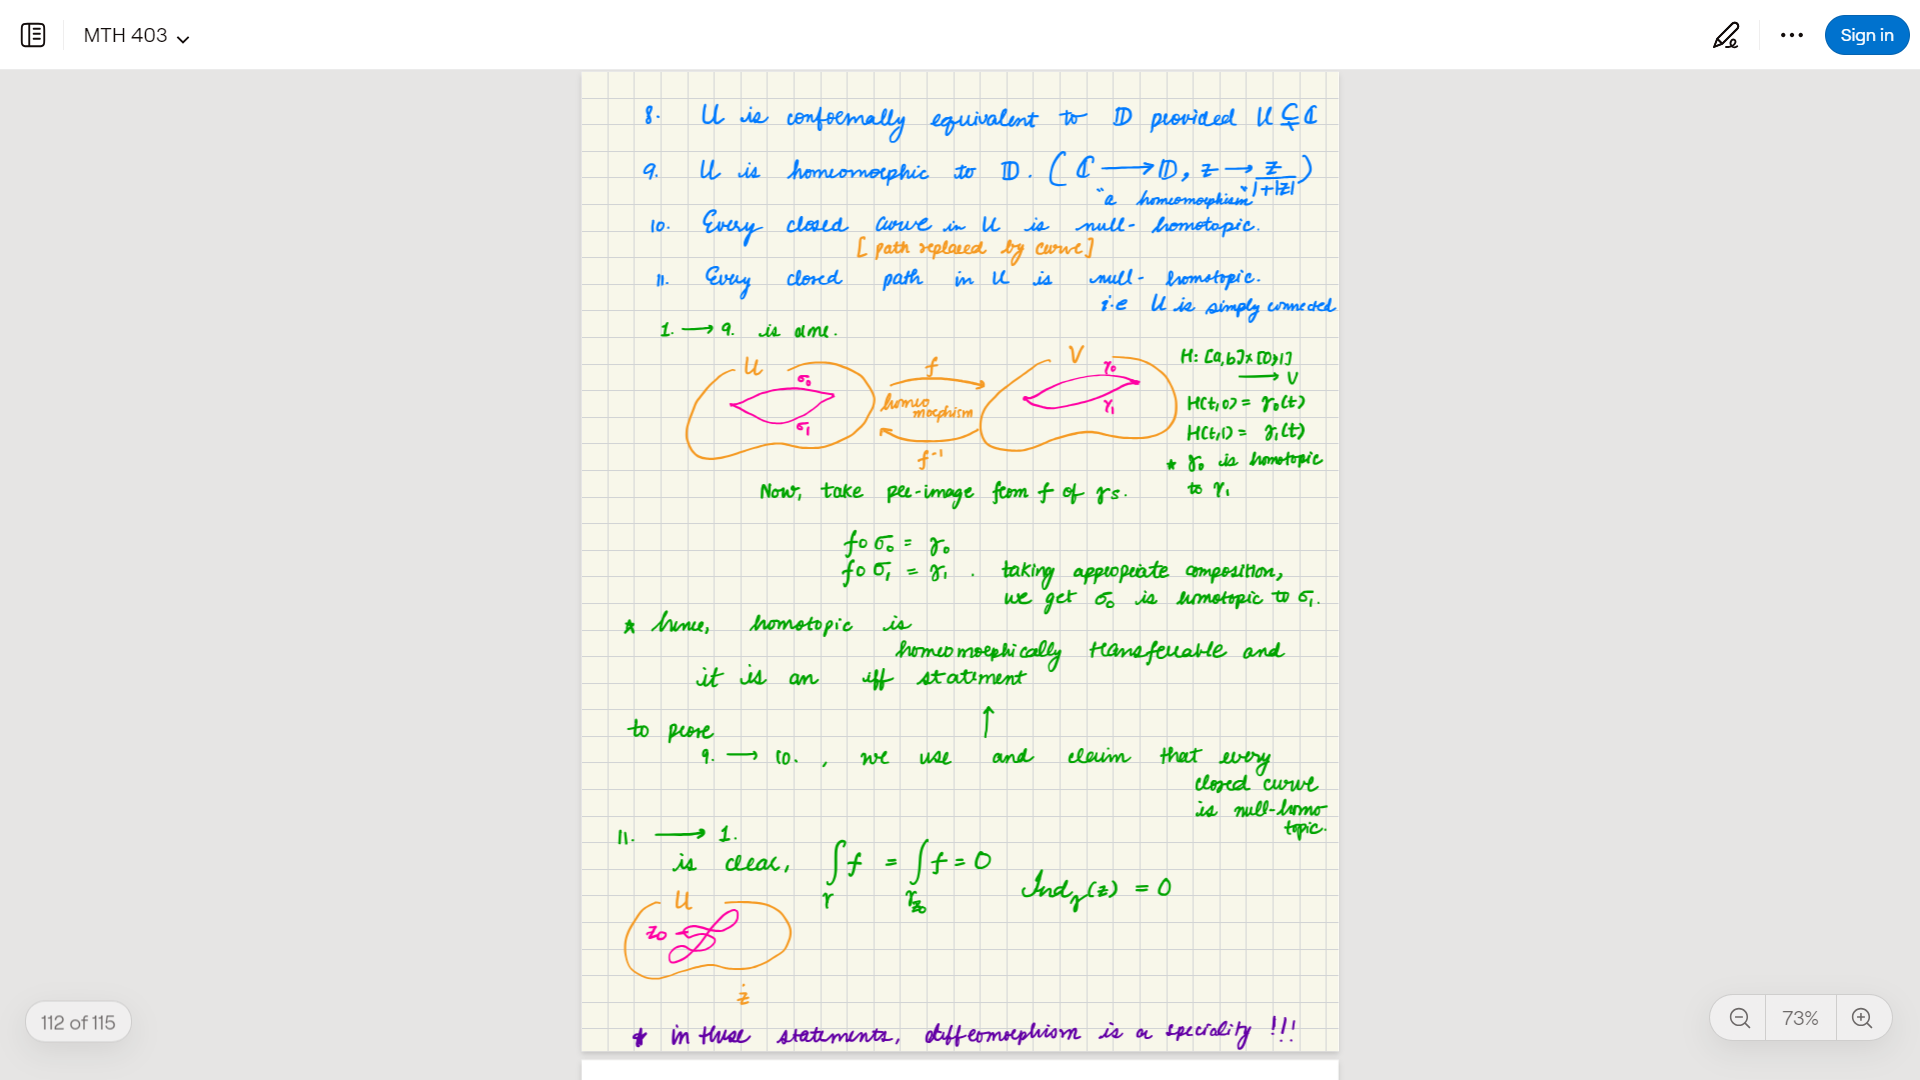 MTH 403
Sign in
8. U is conformally equivalent to 𝔻 provided U ⊊ ℂ
9. U is homeomorphic to 𝔻. ( ℂ ⟶ 𝔻, z ⟶ z/(1+|z|) )
"a homeomorphism"
10. Every closed curve in U is null-homotopic.
[ path replaced by curve ]
11. Every closed path in U is null-homotopic.
i.e U is simply connected
1. ⟶ 9. is done.
U
σ₀
σ₁
f
homeo
morphism
f⁻¹
V
γ₀
γ₁
H: [a,b]×[0,1]
⟶ V
H(t,0) = γ₀(t)
H(t,1) = γ₁(t)
* γ₀ is homotopic
to γ₁
Now, take pre-image from f of γs.
f∘σ₀ = γ₀
f∘σ₁ = γ₁ . taking appropriate composition,
we get σ₀ is homotopic to σ₁.
* hence, homotopic is
homeomorphically transferrable and
it is an iff statement
↑
to prove
9. ⟶ 10. , we use and claim that every
closed curve
is null-homo
topic.
11. ⟶ 1.
is clear, ∫_γ f = ∫_γ_z₀ f = 0 Ind_γ(z) = 0
U
z₀
z
* in these statements, diffeomorphism is a speciality !!!
112 of 115
73%